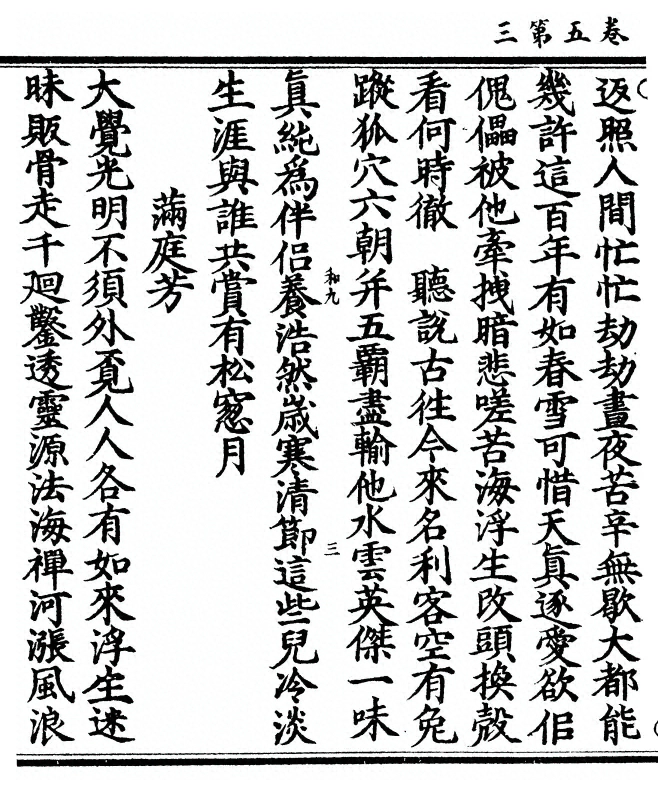 卷五第三
返照人間忙忙劫劫晝夜苦辛無歇大都能
幾許這百年有如春雪可惜天真逐愛欲似
傀儡被他牽拽暗悲嗟苦海浮生改頭換殼
看何時徹　聽說古往今來名利客空有兔
蹤狐穴六朝并五霸盡輸他水雲英傑一味
真純為伴侶養浩然歲寒清節這些兒冷淡
和九
三
生涯與誰共賞有松窓月
滿庭芳
大覺光明不須外覓人人各有如來浮生迷
昧販骨走千廻鑿透靈源法海禪河漲風浪